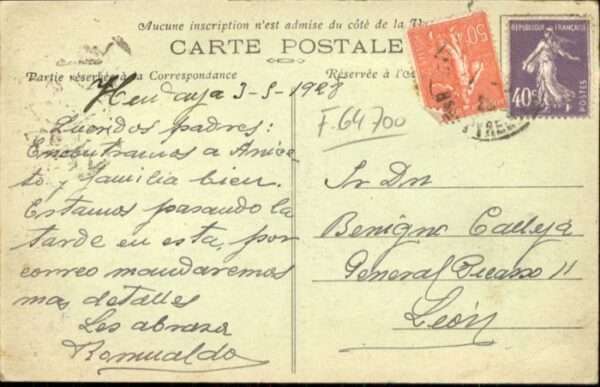 Aucune inscription n'est admise du côté de la
CARTE POSTALE
Partie réservée à la Correspondance
Réservée à
Hendaya 3-5-1928
Queridos padres:
Encontramos a Anice-
to y familia bien.
Estamos pasando la
tarde en esta, por
correo mandaremos
mas detalles
Les abraza
Romualdo
F.64700
50c
RÉPUBLIQUE FRANÇAISE
40c
POSTES
Sr Dn
Benigno Calleja
General Picasso 11
León